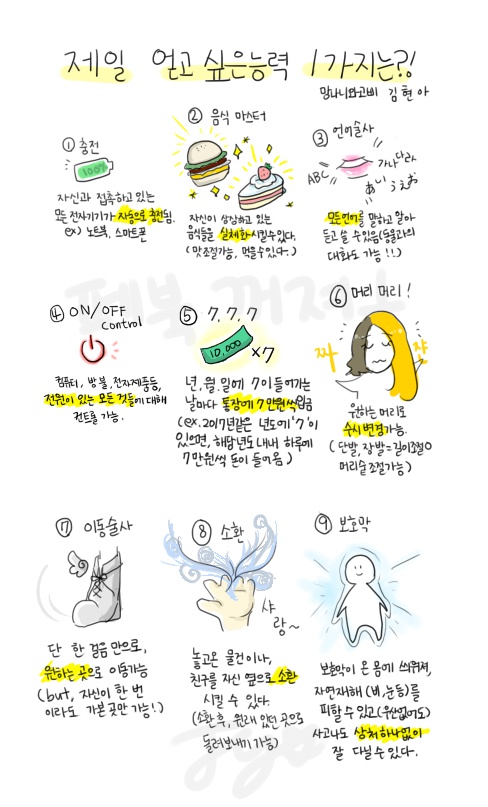 제일 얻고 싶은능력 1가지는?!
망나니와고비 김현아
① 충전
100%
자신과 접촉하고 있는
모든 전자기기가 자동으로 충전됨.
ex) 노트북, 스마트폰
② 음식 마스터
자신이 상상하고 있는
음식들을 실체화시킬수 있다.
(맛조절가능, 먹을수있다.)
③ 언어술사
ABC
가나다라
あいうえお
모든언어를 말하고 알아
듣고 쓸 수있음(동물과의
대화도 가능!!)
④ ON/OFF
control
컴퓨터, 방불, 전자제품등,
전원이 있는 모든 것들에 대해
컨트롤 가능.
⑤ 7, 7, 7
10,000 ×7
년, 월, 일에 7이 들어가는
날마다 통장에 7만원씩입금
(ex. 2017년같은 년도에 '7'이
있으면, 해당년도 내내 하루에
7만원씩 돈이 들어옴)
⑥ 머리 머리!
짜 쟌
원하는 머리로
수시변경가능.
(단발, 장발=길이조절O
머리숱조절가능)
⑦ 이동술사
단 한 걸음 만으로,
원하는 곳으로 이동가능
(but, 자신이 한 번
이라도 가본곳만 가능!)
⑧ 소환
샤
랑~
놓고온 물건이나,
친구를 자신 옆으로 소환
시킬 수 있다.
(소환 후, 원래 있던 곳으로
돌려보내기 가능)
⑨ 보호막
보호막이 온 몸에 씌워져,
자연재해 (비, 눈등)를
피할 수 있고 (우산없어도)
사고나도 상처 하나없이
잘 다닐 수 있다.